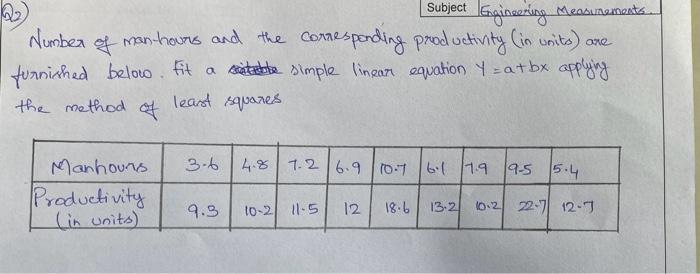 Q2)
Subject Engineering Measurements.
Number of man-hours and the corresponding productivity (in units) are
furnished below. Fit a simple linear equation Y = a + bx applying
the method of least squares
Manhours 3.6 4.8 7.2 6.9 10.7 6.1 7.9 9.5 5.4
Productivity 9.3 10.2 11.5 12 18.6 13.2 10.2 22.7 12.7
(in units)